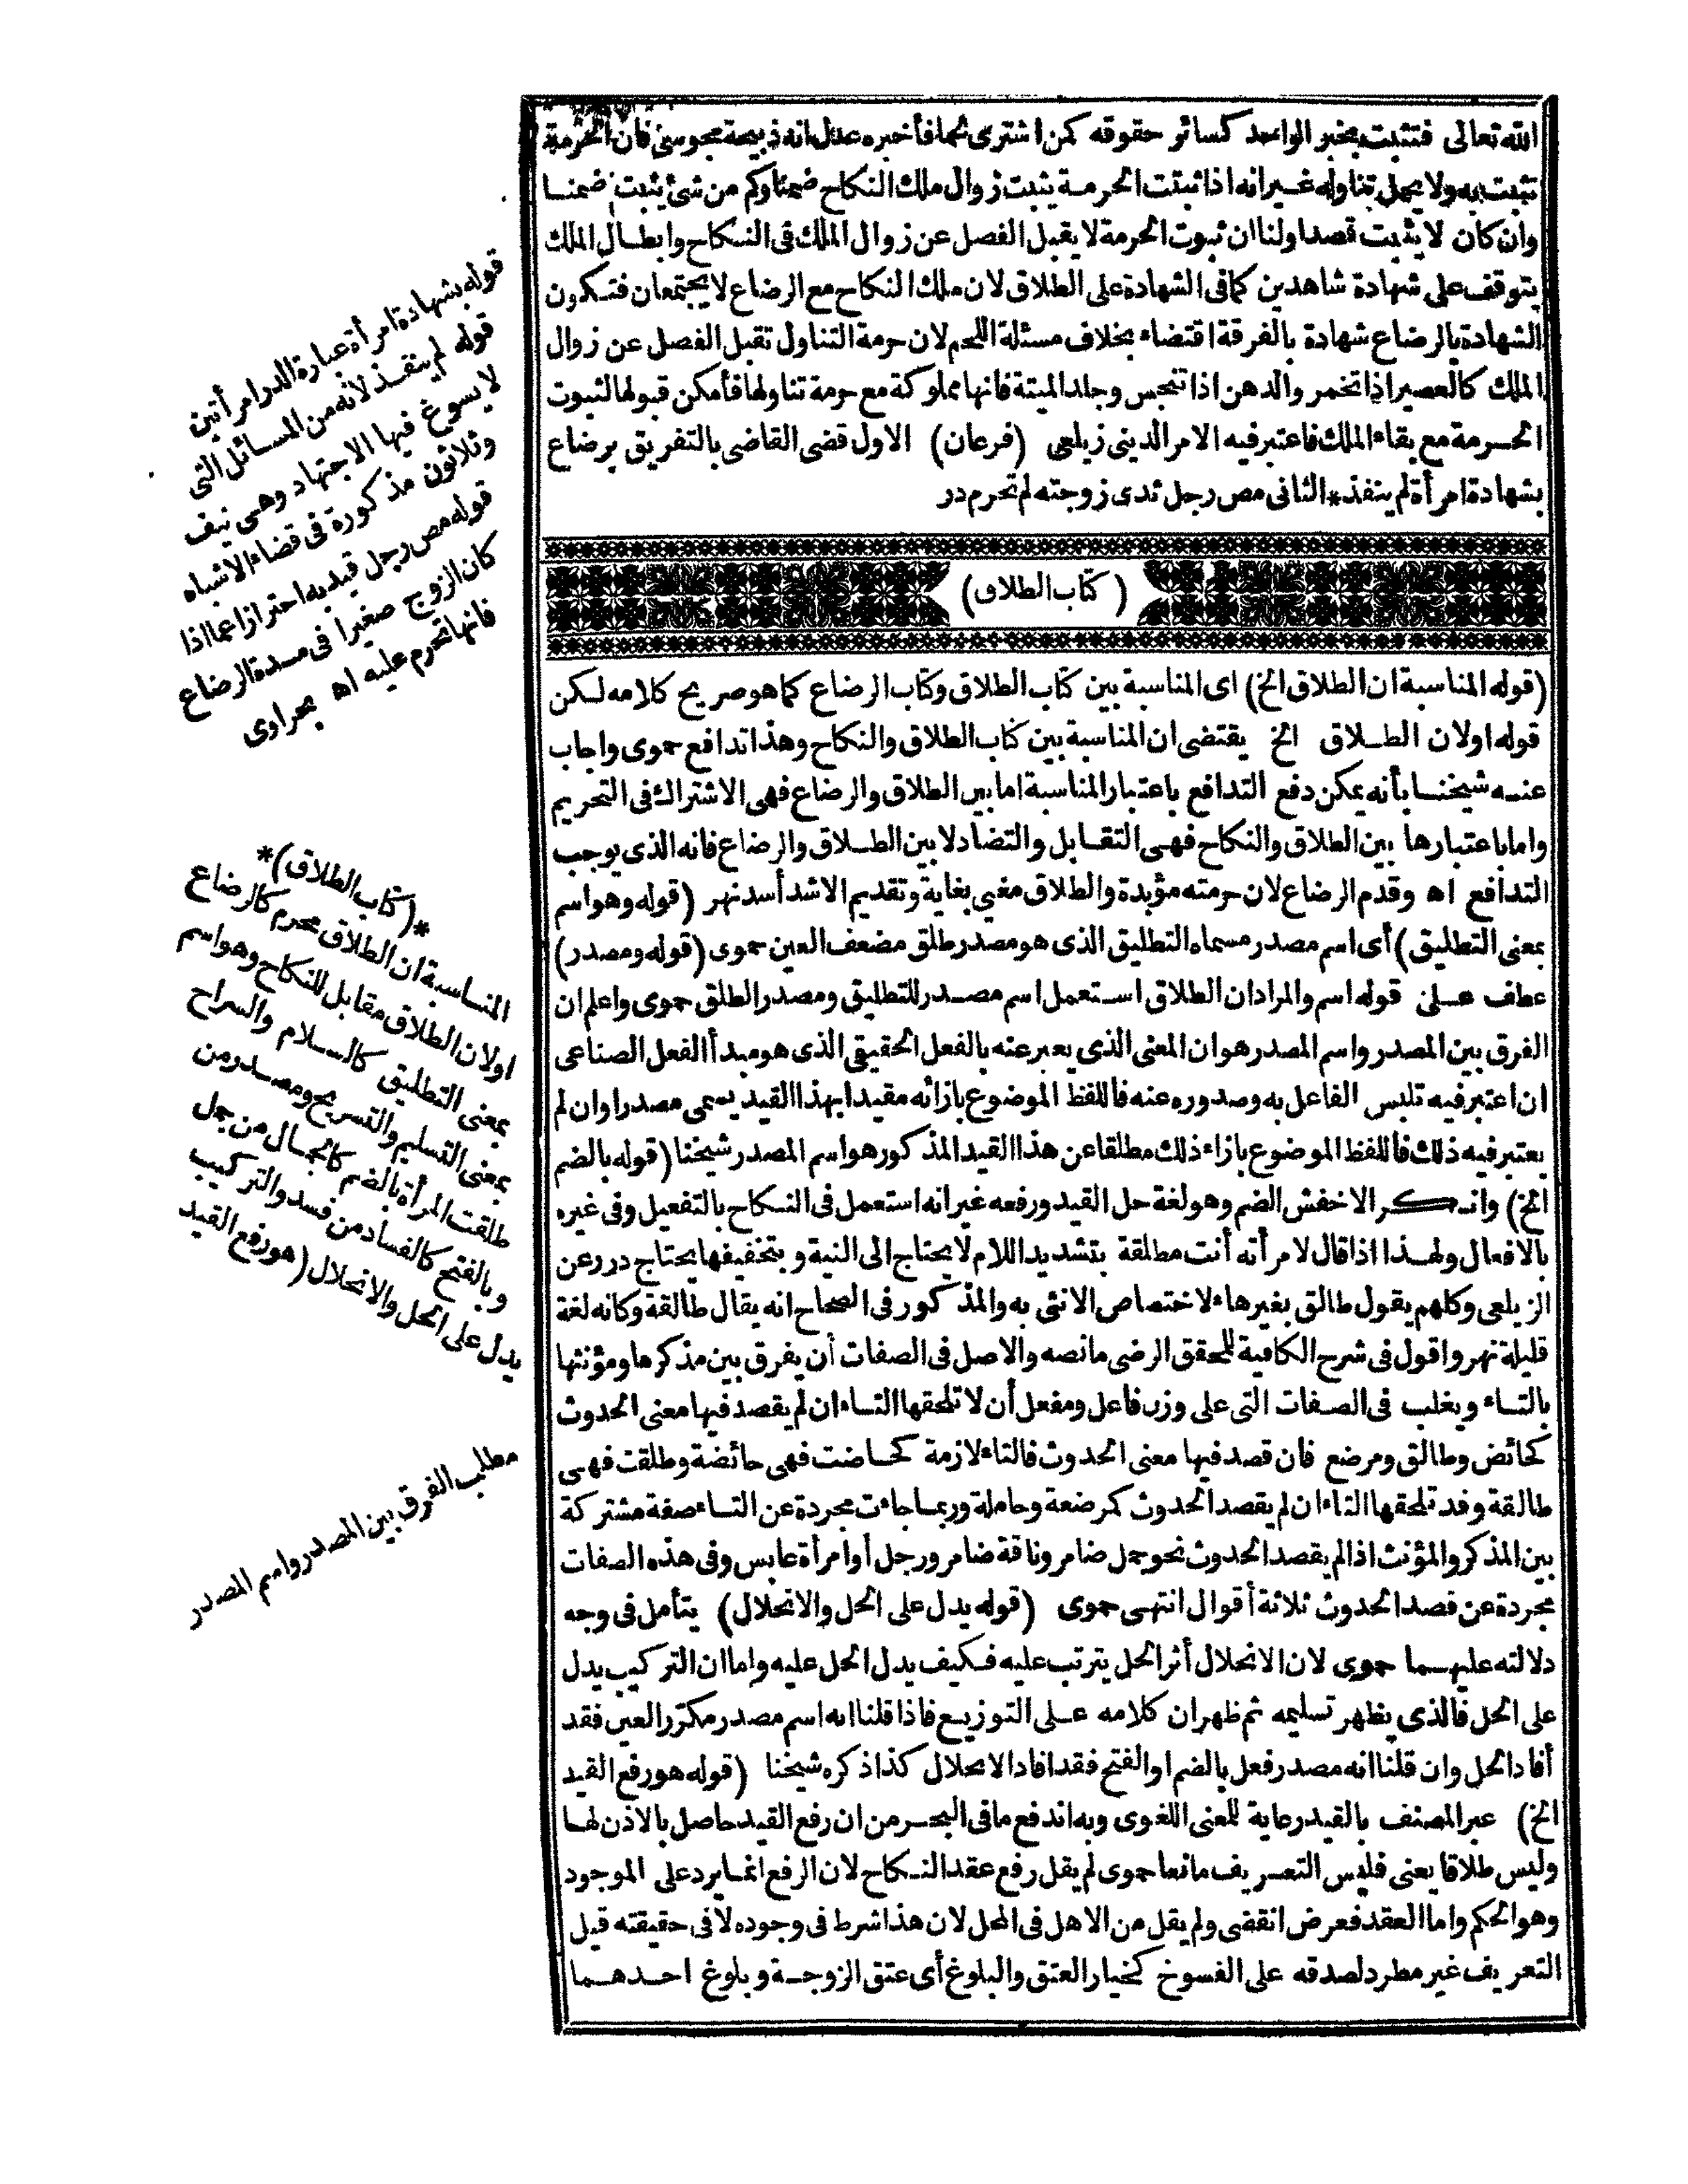 الله تعالى فتثبت بخبر الواحد كسائر حقوقه كمن اشترى لحما فأخبره عدل انه ذبيحة مجوسى فان الحرمة
تثبت به ولا يحل تناوله غير انه اذا ثبتت الحرمة يثبت زوال ملك النكاح ضمنا وكم من شئ يثبت ضمنا
وان كان لا يثبت قصدا ولنا ان ثبوت الحرمة لا يقبل الفصل عن زوال الملك فى النكاح وابطال الملك
يتوقف على شهادة شاهدين كما فى الشهادة على الطلاق لان ملك النكاح مع الرضاع لا يجتمعان فتكون
الشهادة بالرضاع شهادة بالفرقة اقتضاء بخلاف مسئلة اللحم لان حرمة التناول تقبل الفصل عن زوال
الملك كالعصير اذا تخمر والدهن اذا تنجس وجلد الميتة فانها مملوكة مع حرمة تناولها فأمكن قبولها لثبوت
الحرمة مع بقاء الملك فاعتبر فيه الامر الدينى زيلعى (فرعان) الاول قضى القاضى بالتفريق برضاع
بشهادة امرأة لم ينفذ* الثانى مص رجل ثدى زوجته لم تحرم در
(كتاب الطلاق)
(قوله المناسبة ان الطلاق الخ) اى المناسبة بين كتاب الطلاق وكتاب الرضاع كما هو صريح كلامه لكن
قوله اولان الطلاق الخ يقتضى ان المناسبة بين كتاب الطلاق والنكاح وهذا تدافع حموى واجاب
عنه شيخنا بأنه يمكن دفع التدافع باعتبار المناسبة اما بين الطلاق والرضاع فهى الاشتراك فى التحريم
واما باعتبارها بين الطلاق والنكاح فهى التقابل والتضاد لا بين الطلاق والرضاع فانه الذى يوجب
التدافع اه وقدم الرضاع لان حرمته مؤبدة والطلاق مغيى بغاية وتقديم الاشد أسد نهر (قوله وهو اسم
بمعنى التطليق) أى اسم مصدر مسماه التطليق الذى هو مصدر طلق مضعف العين حموى (قوله ومصدر)
عطف على قوله اسم والمراد ان الطلاق استعمل اسم مصدر للتطليق ومصدر الطلق حموى واعلم ان
الفرق بين المصدر واسم المصدر هو ان المعنى الذى يعبر عنه بالفعل الحقيقى الذى هو مبدأ الفعل الصناعى
ان اعتبر فيه تلبس الفاعل به وصدوره عنه فاللفظ الموضوع بازائه مقيدا بهذا القيد يسمى مصدرا وان لم
يعتبر فيه ذلك فاللفظ الموضوع بازاء ذلك مطلقا عن هذا القيد المذكور هو اسم المصدر شيخنا (قوله بالضم
الخ) وانكر الاخفش الضم وهو لغة حل القيد ورفعه غير انه استعمل فى النكاح بالتفعيل وفى غيره
بالافعال ولهذا اذا قال لامرأته أنت مطلقة بتشديد اللام لا يحتاج الى النية وبتخفيفها يحتاج درر عن
الزيلعى وكلهم يقول طالق بغير هاء لاختصاص الانثى به والمذكور فى الصحاح انه يقال طالقة وكانه لغة
قليلة نهر واقول فى شرح الكافية للمحقق الرضى مانصه والاصل فى الصفات أن يفرق بين مذكرها ومؤنثها
بالتاء ويغلب فى الصفات التى على وزن فاعل ومفعل أن لا تلحقها التاء ان لم يقصد فيها معنى الحدوث
كحائض وطالق ومرضع فان قصد فيها معنى الحدوث فالتاء لازمة كحاضت فهى حائضة وطلقت فهى
طالقة وقد تلحقها التاء ان لم يقصد الحدوث كمرضعة وحاملة وربما جاءت مجردة عن التاء صفة مشتركة
بين المذكر والمؤنث اذا لم يقصد الحدوث نحو جمل ضامر وناقة ضامر ورجل أو امرأة عابس وفى هذه الصفات
مجردة عن قصد الحدوث ثلاثة أقوال انتهى حموى (قوله يدل على الحل والانحلال) يتأمل فى وجه
دلالته عليهما حموى لان الانحلال أثر الحل يترتب عليه فكيف يدل الحل عليه واما ان التركيب يدل
على الحل فالذى يظهر تسليمه ثم ظهر ان كلامه على التوزيع فاذا قلنا انه اسم مصدر مكرر العين فقد
أفاد الحل وان قلنا انه مصدر فعل بالضم او الفتح فقد افاد الانحلال كذا ذكره شيخنا (قوله هو رفع القيد
الخ) عبر المصنف بالقيد رعاية للمعنى اللغوى وبه اندفع ما فى البحر من ان رفع القيد حاصل بالاذن لها
وليس طلاقا يعنى فليس التعريف مانعا حموى لم يقل رفع عقد النكاح لان الرفع انما يرد على الموجود
وهو الحكم واما العقد فعرض انقضى ولم يقل من الاهل فى المحل لان هذا شرط فى وجوده لا فى حقيقته قيل
التعريف غير مطرد لصدقه على الفسوخ كخيار العتق والبلوغ أى عتق الزوجة وبلوغ احدهما
قوله بشهادة امرأة عبارة الدر امرأتين
قوله لم ينفذ لانه من المسائل التى
لا يسوغ فيها الاجتهاد وهى نيف
وثلاثون مذكورة فى قضاء الاشباه
قوله مص رجل قيد به احترازا عما اذا
كان الزوج صغيرا فى مدة الرضاع
فانها تحرم عليه اه بحراوى
*(كتاب الطلاق)*
المناسبة ان الطلاق محرم كالرضاع
اولان الطلاق مقابل للنكاح وهو اسم
بمعنى التطليق كالسلام والسراح
بمعنى التسليم والتسريح ومصدر من
طلقت المرأة بالضم كالجمال من جمل
وبالفتح كالفساد من فسد والتركيب
يدل على الحل والانحلال (هو رفع القيد
مطلب الفرق بين المصدر واسم المصدر